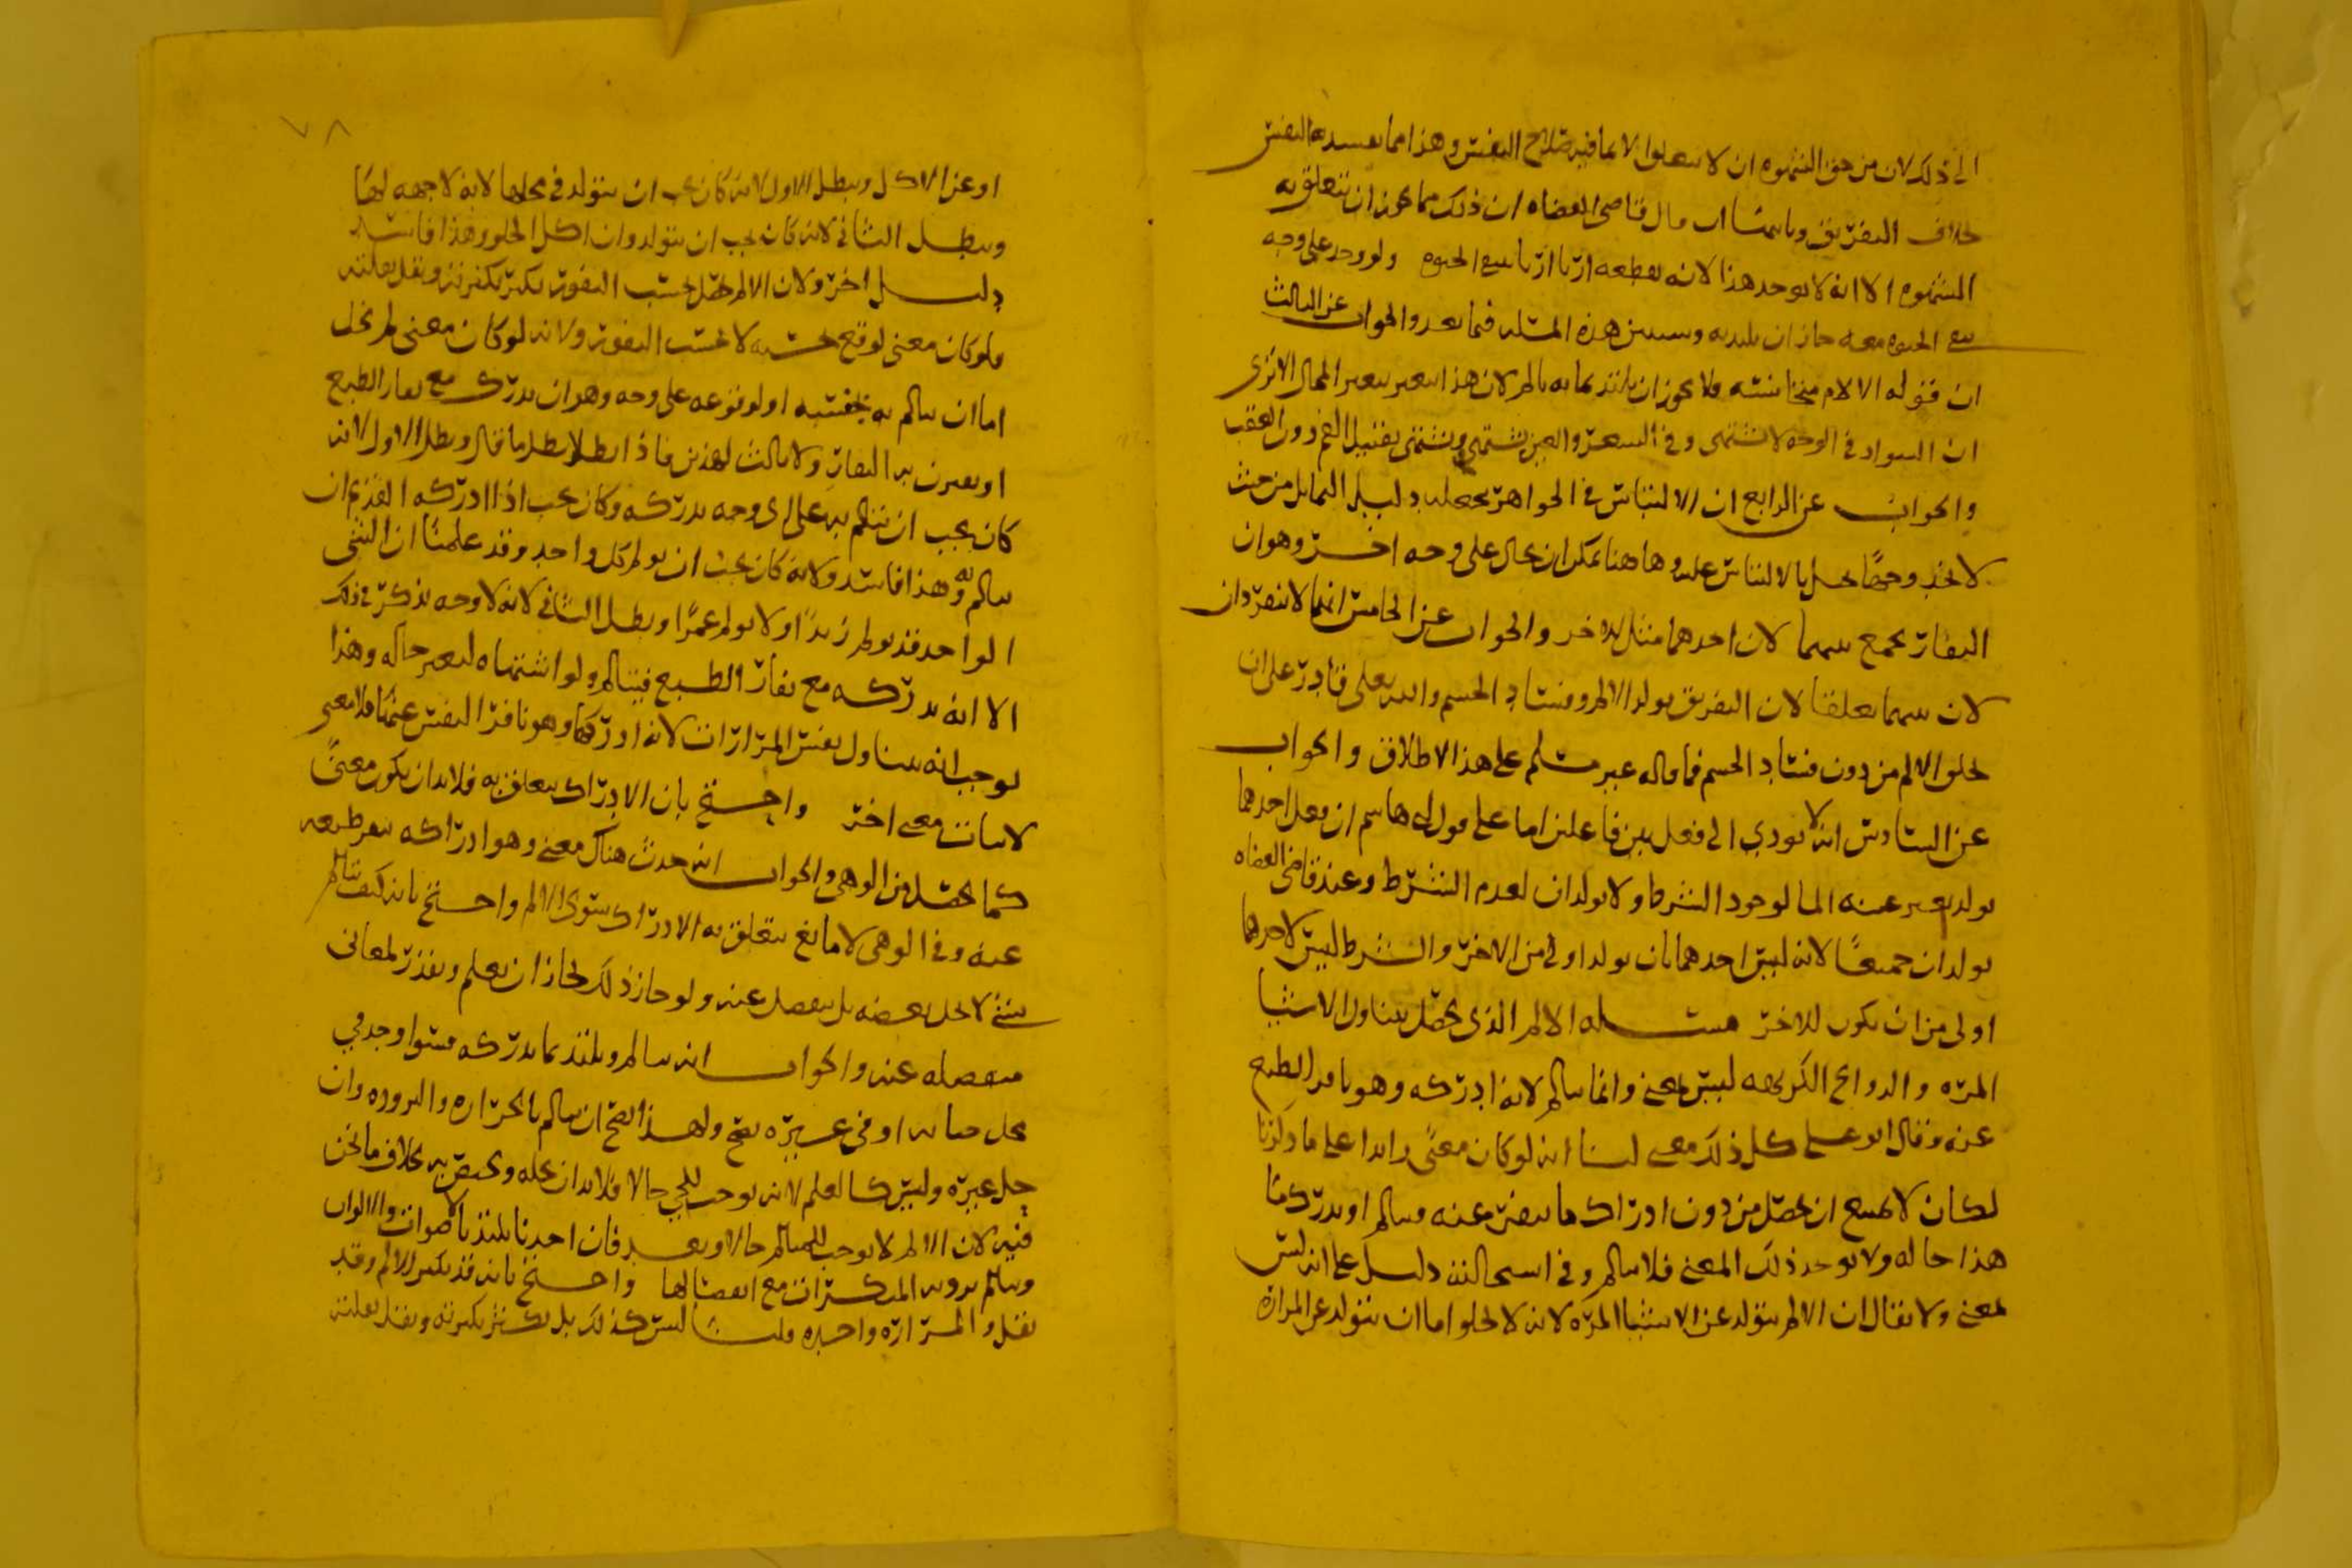 الى ذلك لان من حق الشهوه ان لا تتعلق الا بما فيه صلاح النفس وهذا مما يفسد به النفس
بخلاف التفريق قال قاضي القضاه ان ذلك مما يجوز ان تتعلق به
الشهوه الا انه لا يوجد هذا لانه بقطعه اربا اربا الحيوه ولو وجد على وجه
الحيوه معه جاز ان يلتذ به وسنبين هذه المسله فيما بعد والجواب عن الثالث
ان قوله الالام متجانسه فلا يجوز ان يلتذ بما به يالم لان هذا يتغير بتغير المحال الا ترى
ان السواد في الوجه لا يشتهى وفي الشعر والعين يشتهى ويشتهى تقبيل الفم دون العقب
والجواب عن الرابع ان الالتباس في الجواهر نجعله دليل التماثل من حيث
لا نجد وجها يحيل بالالتباس عليه وها هنا يمكن ان يحال على وجه اخر وهو ان
النفار يجمع بينهما لان احدهما مثل الاخر والجواب عن الخامس انهما لا ينفردان
لان بينهما تعلقا لان التفريق يولد الالم وفساد الجسم والله تعالى قادر على ان
يخلق الالم من دون فساد الجسم فما قاله غير مسلم على هذا الاطلاق والجواب
عن السادس انه لا يودي الى فعل بين فاعلين اما على قول ابي هاشم ان فعل احدهما
يولد الما لوجود الشرط ولا يولدان لعدم الشرط وعند قاضي القضاه
يولدان جميعا لانه ليس احدهما بان يولد اولى من الاخر والشرط ليس لاحدهما
اولى من ان يكون للاخر مسله الالم الذي يحصل بتناول الاشيا
المره والروايح الكريهه ليس بمعنى وانما يالم لانه ادركه وهو نافر الطبع
عنه وقال ابو علي كل ذلك معنى لنا انه لو كان معنى زايدا على ما ذكرنا
لكان لا يمتنع ان يحصل من دون ادراك ما ينفر عنه فيالم او يدرك ما
هذا حاله ولا يوجد ذلك المعنى فلا يالم وفي استحالته دليل على انه ليس
بمعنى ولا يقال ان الالم يتولد عن الاشيا المره لانه لا يخلو اما ان يتولد عن المراره
٧٨
او عن الاكل ويبطل الاول لانه كان يجب ان يتولد في محلها لانه لا جهه لها
ويبطل الثاني لانه كان يجب ان يتولد وان اكل الحلو وهذا فاسد
دليل اخر ولان الالم يحصل بحسب النفور يكثر بكثرته ويقل بقلته
ولو كان معنى لوقع بحسبه لا بحسب النفور ولانه لو كان معنى لم يخل
اما ان يالم به لجنسه او لوقوعه على وجه وهو ان يدركه مع نفار الطبع
او يقترن به النفار ولا ثالث لهذين فاذا بطلا بطل ما قال وبطل الاول لانه
كان يجب ان يتالم به على اي وجه يدركه وكان يجب اذا ادركه القديم ان
يالم به وهذا فاسد ولانه كان يجب ان يولم كل واحد وقد علمنا ان الشي
الواحد قد يولم زيدا ولا يولم عمرا ويطل الثاني لانه لا وجه يذكر في ذلك
الا انه يدركه مع نفار الطبع فيتالم ولو اشتهاه لتغير حاله وهذا
يوجب انه يتناول نفس المرارات لانه ادركها وهو نافر النفس عنها فلا معنى
لاثبات معنى اخر واحتج بان الادراك يتعلق به فلا بد ان يكون معنى
كما يحصل من الوهى والجواب انه حدث هناك معنى وهو ادراكه بنفر طبعه
عنه وفي الوهى لا مانع يتعلق به الادراك سوى الالم واحتج بانه كيف يتالم
بشي لا يحل بعضه بل ينفصل عنه ولو جاز ذلك لجاز ان يعلم ويقدر لمعاني
منفصله عنه والجواب انه يالم ويلتذ بما يدركه سوا وجد في
محل حياته او في غيره يصح ولهذا يصح ان يالم بالحراره والبروده وان
حل غيره وليس كالعلم لانه يوجب للحي حالا فلا بد ان يحله ويختص به بخلاف ما نحن
فيه لان الالم لا يوجب للمتالم حالا وبعد فان احدنا يلتذ بالاصوات والالوان
ويالم بدونه المنكرات مع انفصالها واحتج بانه قد يكثر الالم وقد
يقل والمراره واحده قلنا ليس كذلك بل يكثر بكثرته ويقل بقلته